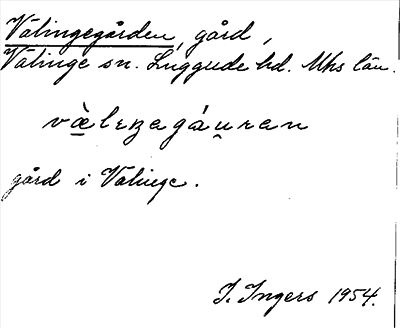 Välingegården, gård,
Välinge sn. Luggude hd. Mhs län.
vælıŋagáu̯ran
gård i Välinge.
I. Ingers 1954.